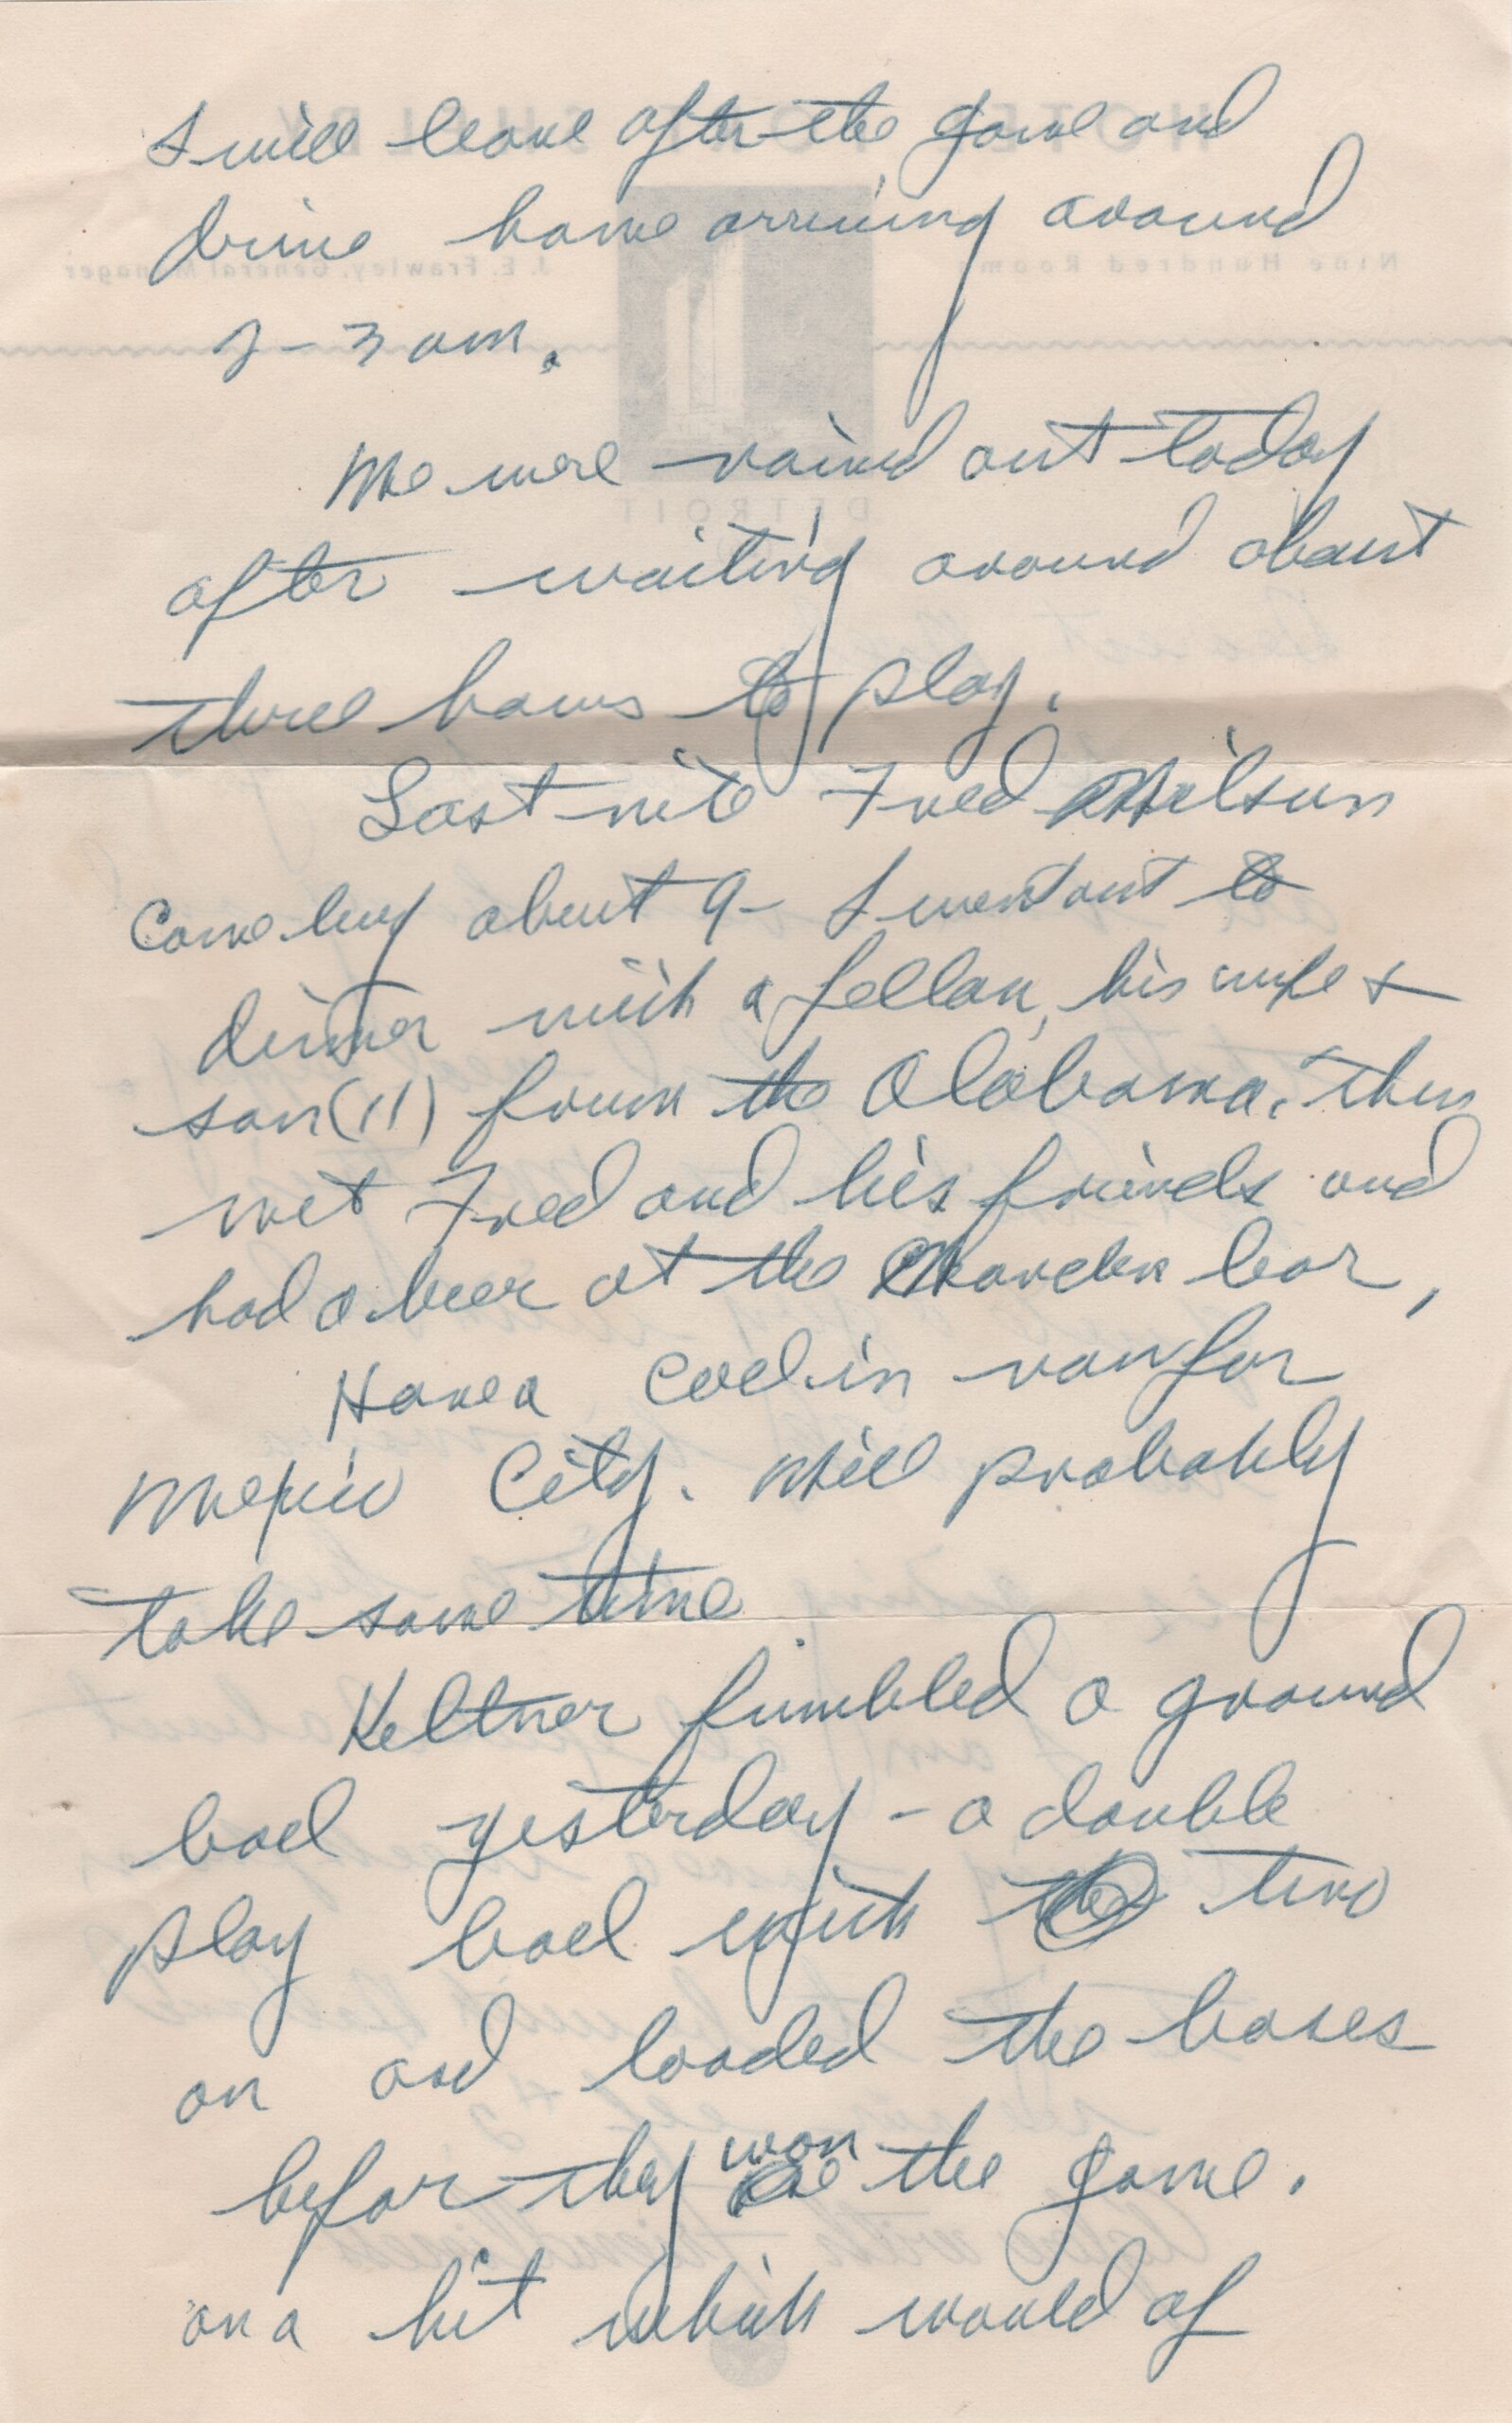 I will leave after the game and
drive home arriving around
2-3 am.
We were rained out today
after waiting around about
three hours to play.
Last nite Fred Wilson
came buy about 9- I went out to
dinner with a fellow, his wife &
son (11) from the Alabama. Then
met Fred and his friends and
had a beer at the bar,
Have a call in now for
Mexico City. Will probably
take some time
Keltner fumbled a ground
ball yesterday - a double
play ball with the two
on and loaded the bases
befor they won the game.
on a hit which would of
HOTEL FORT SHELBY
Nine Hundred Rooms
J. E. Frawley, General Manager
DETROIT